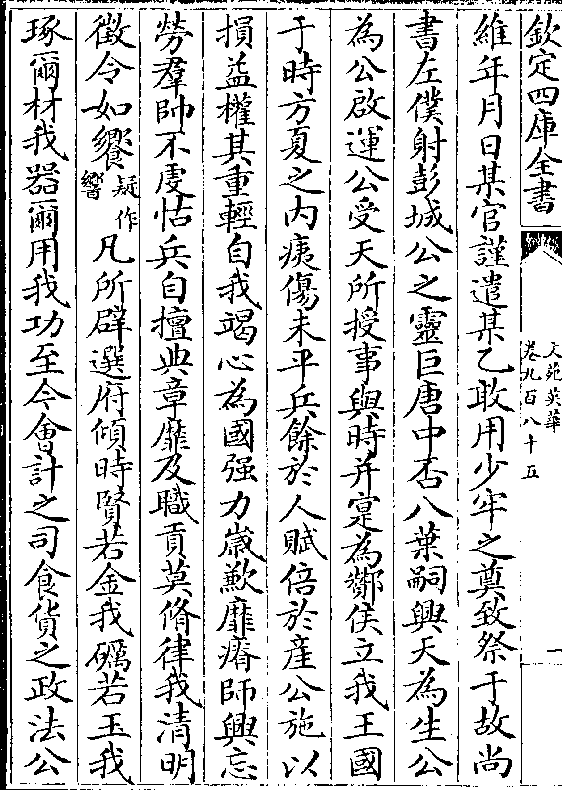 欽定四庫全書
文苑英華
卷九百八十五
一
維年月日某官謹遣某乙敢用少牢之奠致祭于故尚
書左僕射彭城公之靈巨唐中否八葉嗣興天為生公
為公啟運公受天所授事與時并寔為酇侯立我王國
于時方夏之內痍傷未平兵餘於人賦倍於產公施以
損益權其重輕自我竭心為國强力嵗歉靡瘠師興忘
勞羣帥不䖍怙兵自擅典章靡及職貢莫脩律我清明
徵令如饗疑作響凡所辟選府傾時賢若金我礪若玉我
琢爾材我器爾用我功至今㑹計之司食貨之政法公